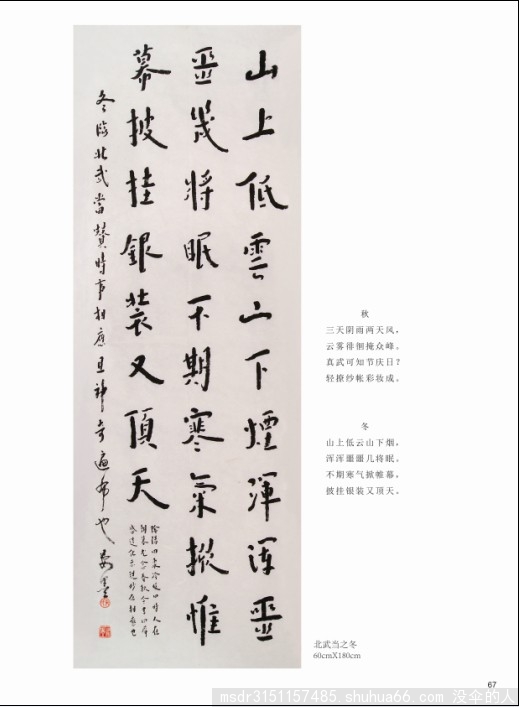 山上低雲山下煙渾渾噩
噩幾將眠不期寒氣掀惟
幕披挂銀裝又頂天
冬臨北武當贊時事相應且神奇遍布也
秋
三天阴雨两天风，
云雾徘徊掩众峰。
真武可知节庆日？
轻撩纱帐彩妆成。
冬
山上低云山下烟，
浑浑噩噩几将眠。
不期寒气掀帷幕，
披挂银装又顶天。
北武当之冬
60cmX180cm
67
msdr3151157485.shuhua66.com 没伞的人